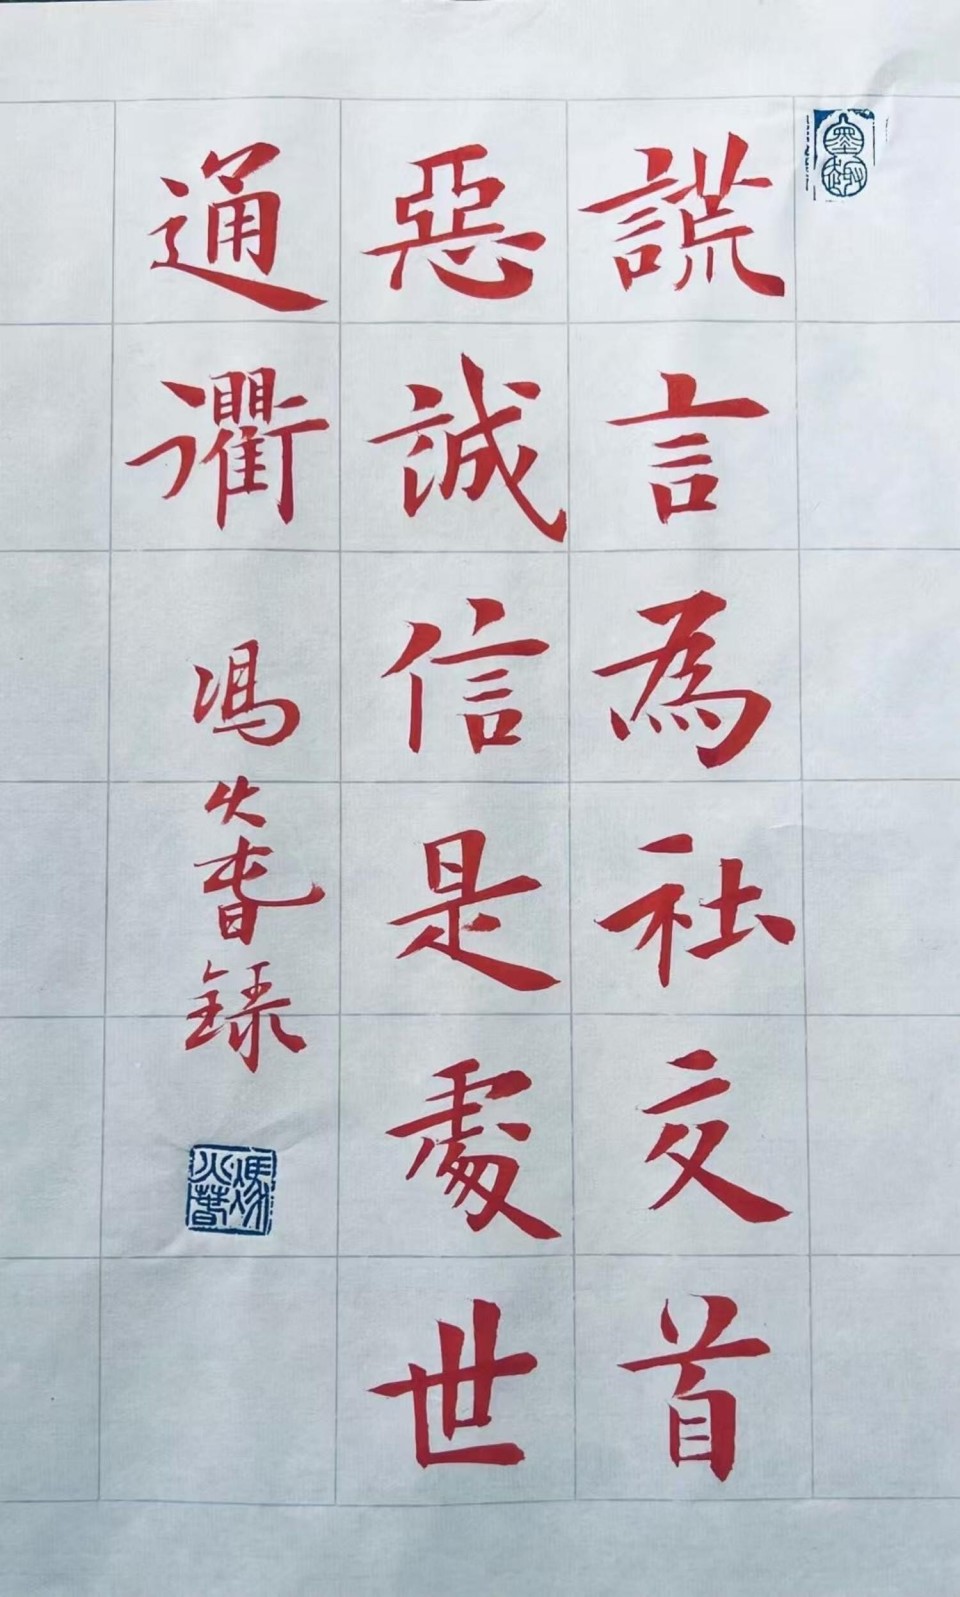 謊言為社交首
惡誠信是處世
通衢
馮火書錄
墨趣